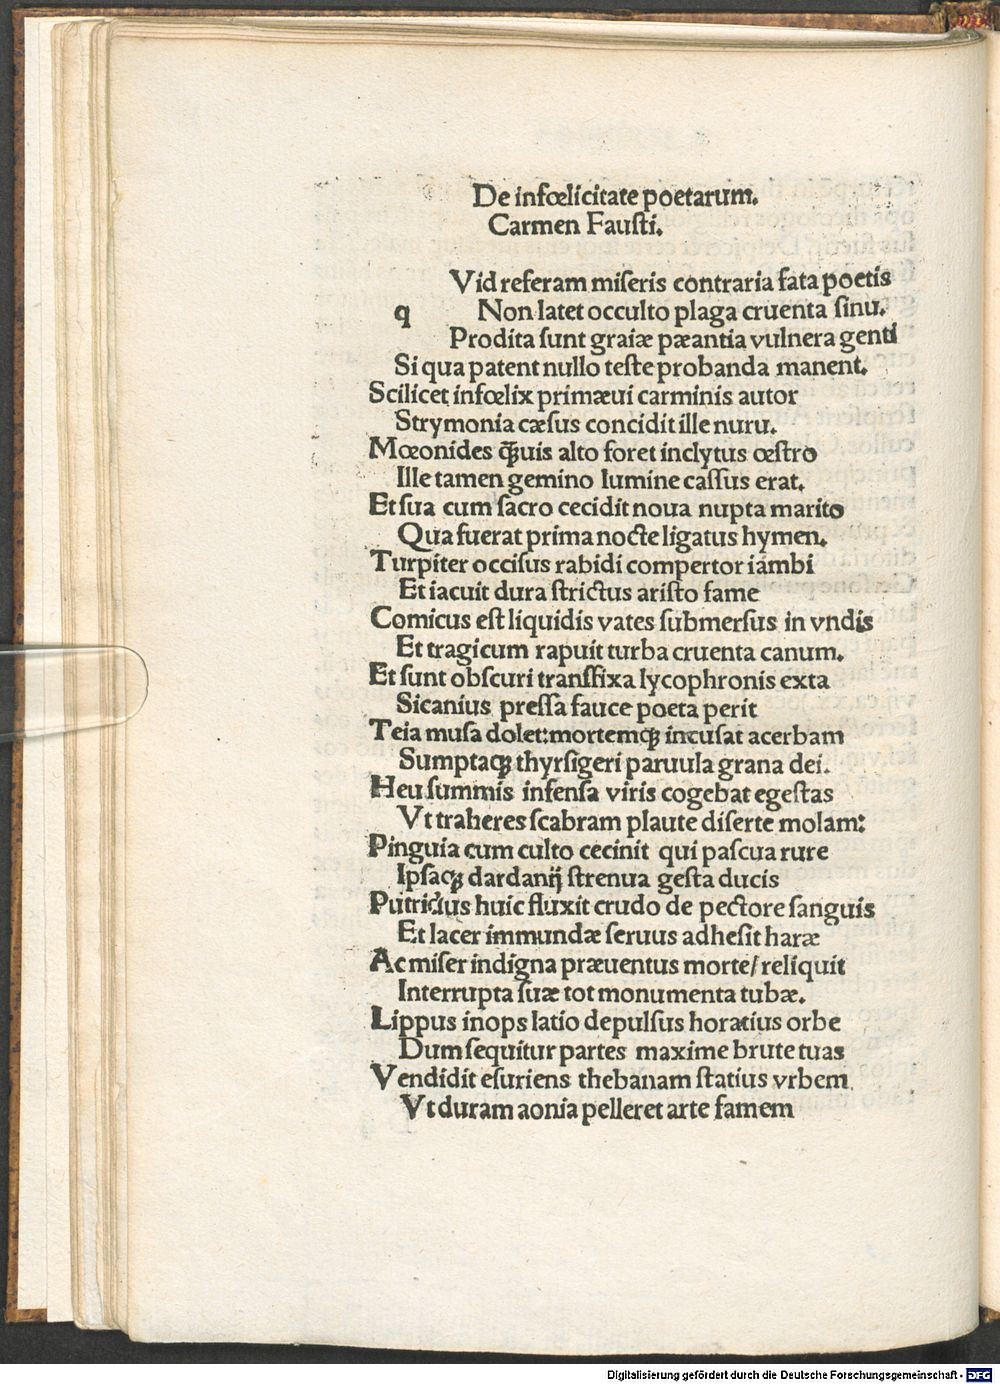 De infœlicitate poetarum.
Carmen Fausti.
Vid referam miseris contraria fata poetis
q Non latet occulto plaga cruenta sinu.
Prodita sunt graiæ pæantia vulnera genti
Si qua patent nullo teste probanda manent.
Scilicet infœlix primæui carminis autor
Strymonia cæsus concidit ille nuru.
Mœonides ꝙ̃uis alto foret inclytus œstro
Ille tamen gemino lumine cassus erat.
Et sua cum sacro cecidit noua nupta marito
Qua fuerat prima nocte ligatus hymen.
Turpiter occisus rabidi compertor iambi
Et iacuit dura strictus aristo fame
Comicus est liquidis vates submersus in vndis
Et tragicum rapuit turba cruenta canum.
Et sunt obscuri transfixa lycophronis exta
Sicanius pressa fauce poeta perit
Teia musa dolet: mortemqꝫ incusat acerbam
Sumptaqꝫ thyrsigeri paruula grana dei.
Heu summis infensa viris cogebat egestas
Vt traheres scabram plaute diserte molam:
Pinguia cum culto cecinit qui pascua rure
Ipsaqꝫ dardanij strenua gesta ducis
Putridus huic fluxit crudo de pectore sanguis
Et lacer immundæ seruus adhesit haræ
Ac miser indigna præuentus morte/ reliquit
Interrupta suæ tot monumenta tubæ.
Lippus inops latio depulsus horatius orbe
Dum sequitur partes maxime brute tuas
Vendidit esuriens thebanam statius vrbem
Vt duram aonia pelleret arte famem
Digitalisierung gefördert durch die Deutsche Forschungsgemeinschaft - DFG